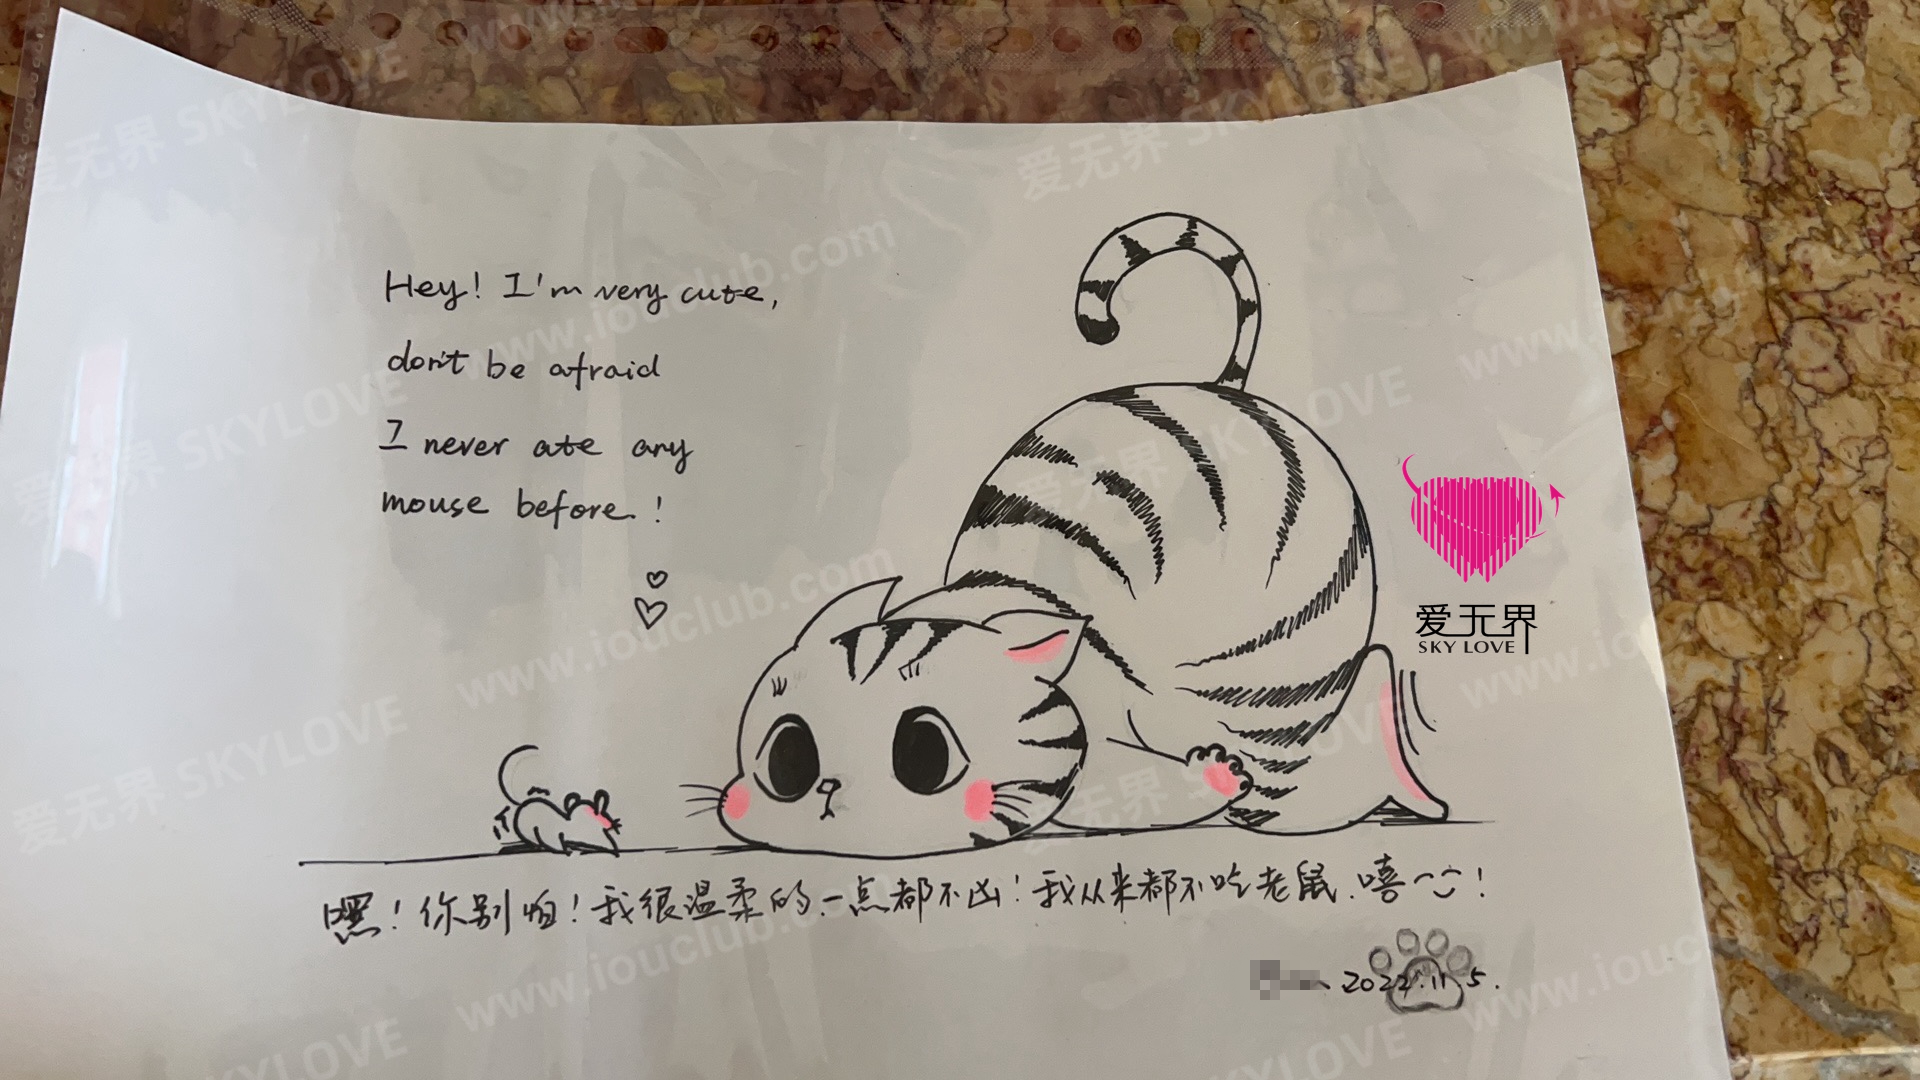 Hey! I'm very cute,
don't be afraid
I never ate any
mouse before!
爱无界
SKY LOVE
嘿!你别怕!我很温柔的.一点都不凶!我从来都不吃老鼠.嘻~!
2022.11.5.
爱无界 SKYLOVE
www.iouclub.com